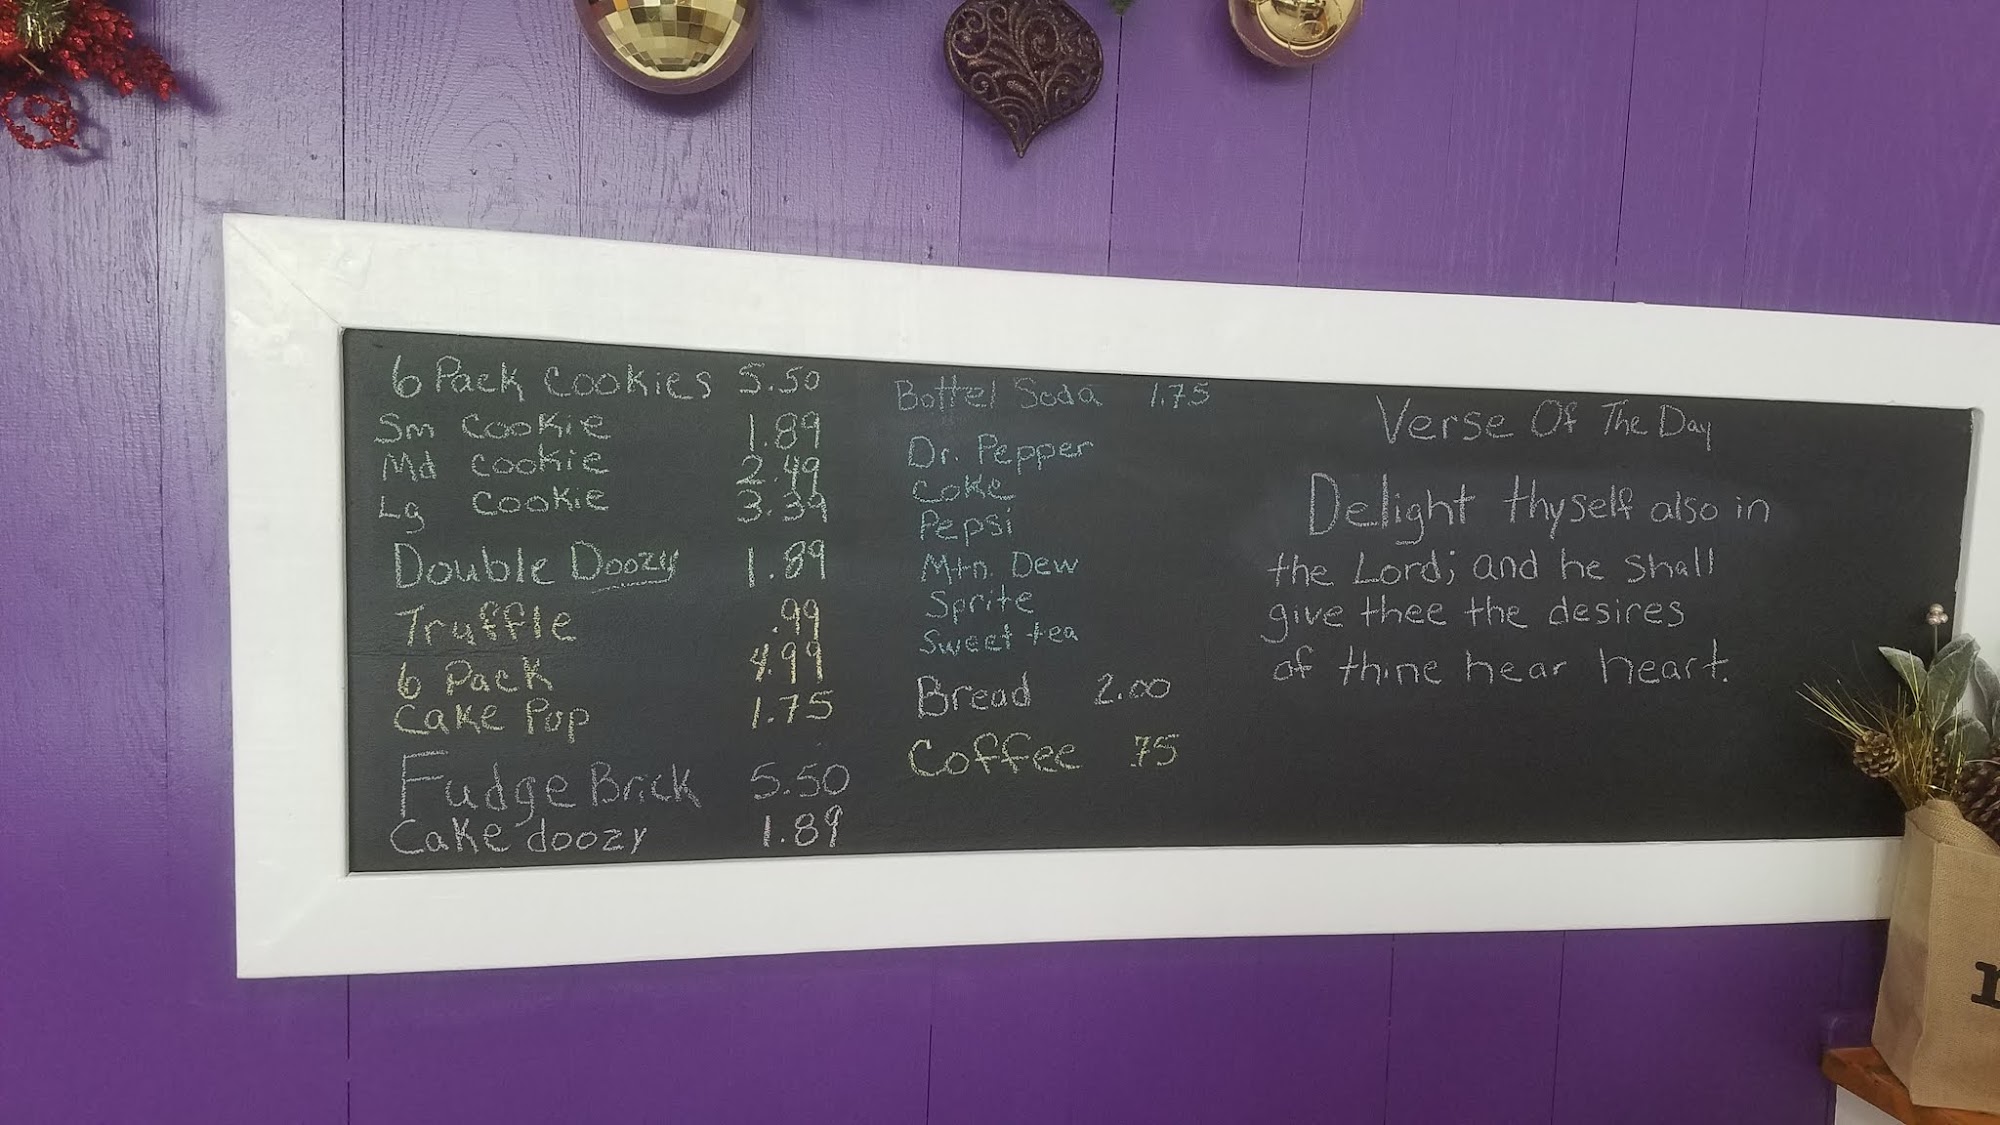 6 Pack Cookies 5.50
Sm Cookie 1.89
Md Cookie 2.49
Lg Cookie 3.39
Double Doozy 1.89
Truffle .99
6 Pack 4.99
Cake Pop 1.75
Fudge Brick 5.50
Cake doozy 1.89
Bottel Soda 1.75
Dr. Pepper
Coke
Pepsi
Mtn. Dew
Sprite
Sweet tea
Bread 2.00
Coffee .75
Verse Of The Day
Delight thyself also in
the Lord; and he shall
give thee the desires
of thine hear heart.